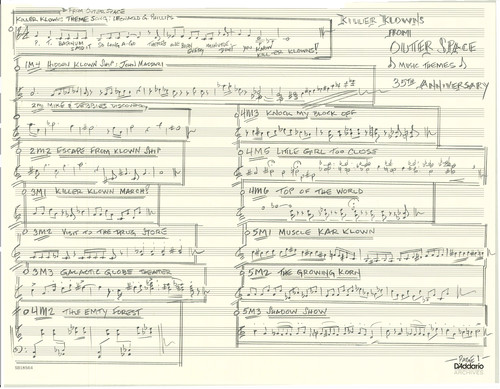 FROM OUTER SPACE
KILLER KLOWNS THEME SONG:
P. T. BARNUM SAID IT SO LONG A-GO THERE'S ONE BORN EVERY MINUTE DON'T YOU KNOW
KILLER KLOWNS!
KILLER KLOWNS
FROM
OUTER SPACE
MUSIC THEMES
35TH ANNIVERSARY
1M4 HIDDEN KLOWN SHIP: JOHN MASSARI
2M1 MIKE & DEBBIES DISCOVERY
2M2 ESCAPE FROM KLOWN SHIP
3M1 KILLER KLOWN MARCH!
3M2 VISIT TO THE DRUG STORE
3M3 GALACTIC GLOBE THEATER
4M2 THE EMTY FOREST
4M3 KNOCK MY BLOCK OFF
4M5 LITTLE GIRL TOO CLOSE
4M6 TOP OF THE WORLD
5M1 MUSCLE KAR KLOWN
5M2 THE GROWING KORN
5M3 SHADOW SHOW
PAGE 1
D'Addario
ARCHIVES